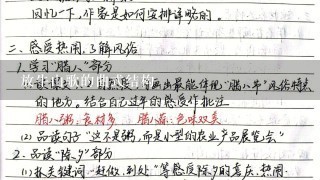 回忆一下，作家是如何安排详略的。
二、感受热闹，了解风俗
1.学习“腊八”部分
画出最能体现“腊八节”风俗特点
的地方。结合自己过年的感受作批注
腊八粥：食材多 腊八蒜：色味双美
(2)品读句子“这不是粥，而是小型的农业产品展览会”
2.品读“除夕”部分
(1)抓关键词“赶做、到处”等感受除夕的喜庆、热闹
放牛山歌的曲式结构